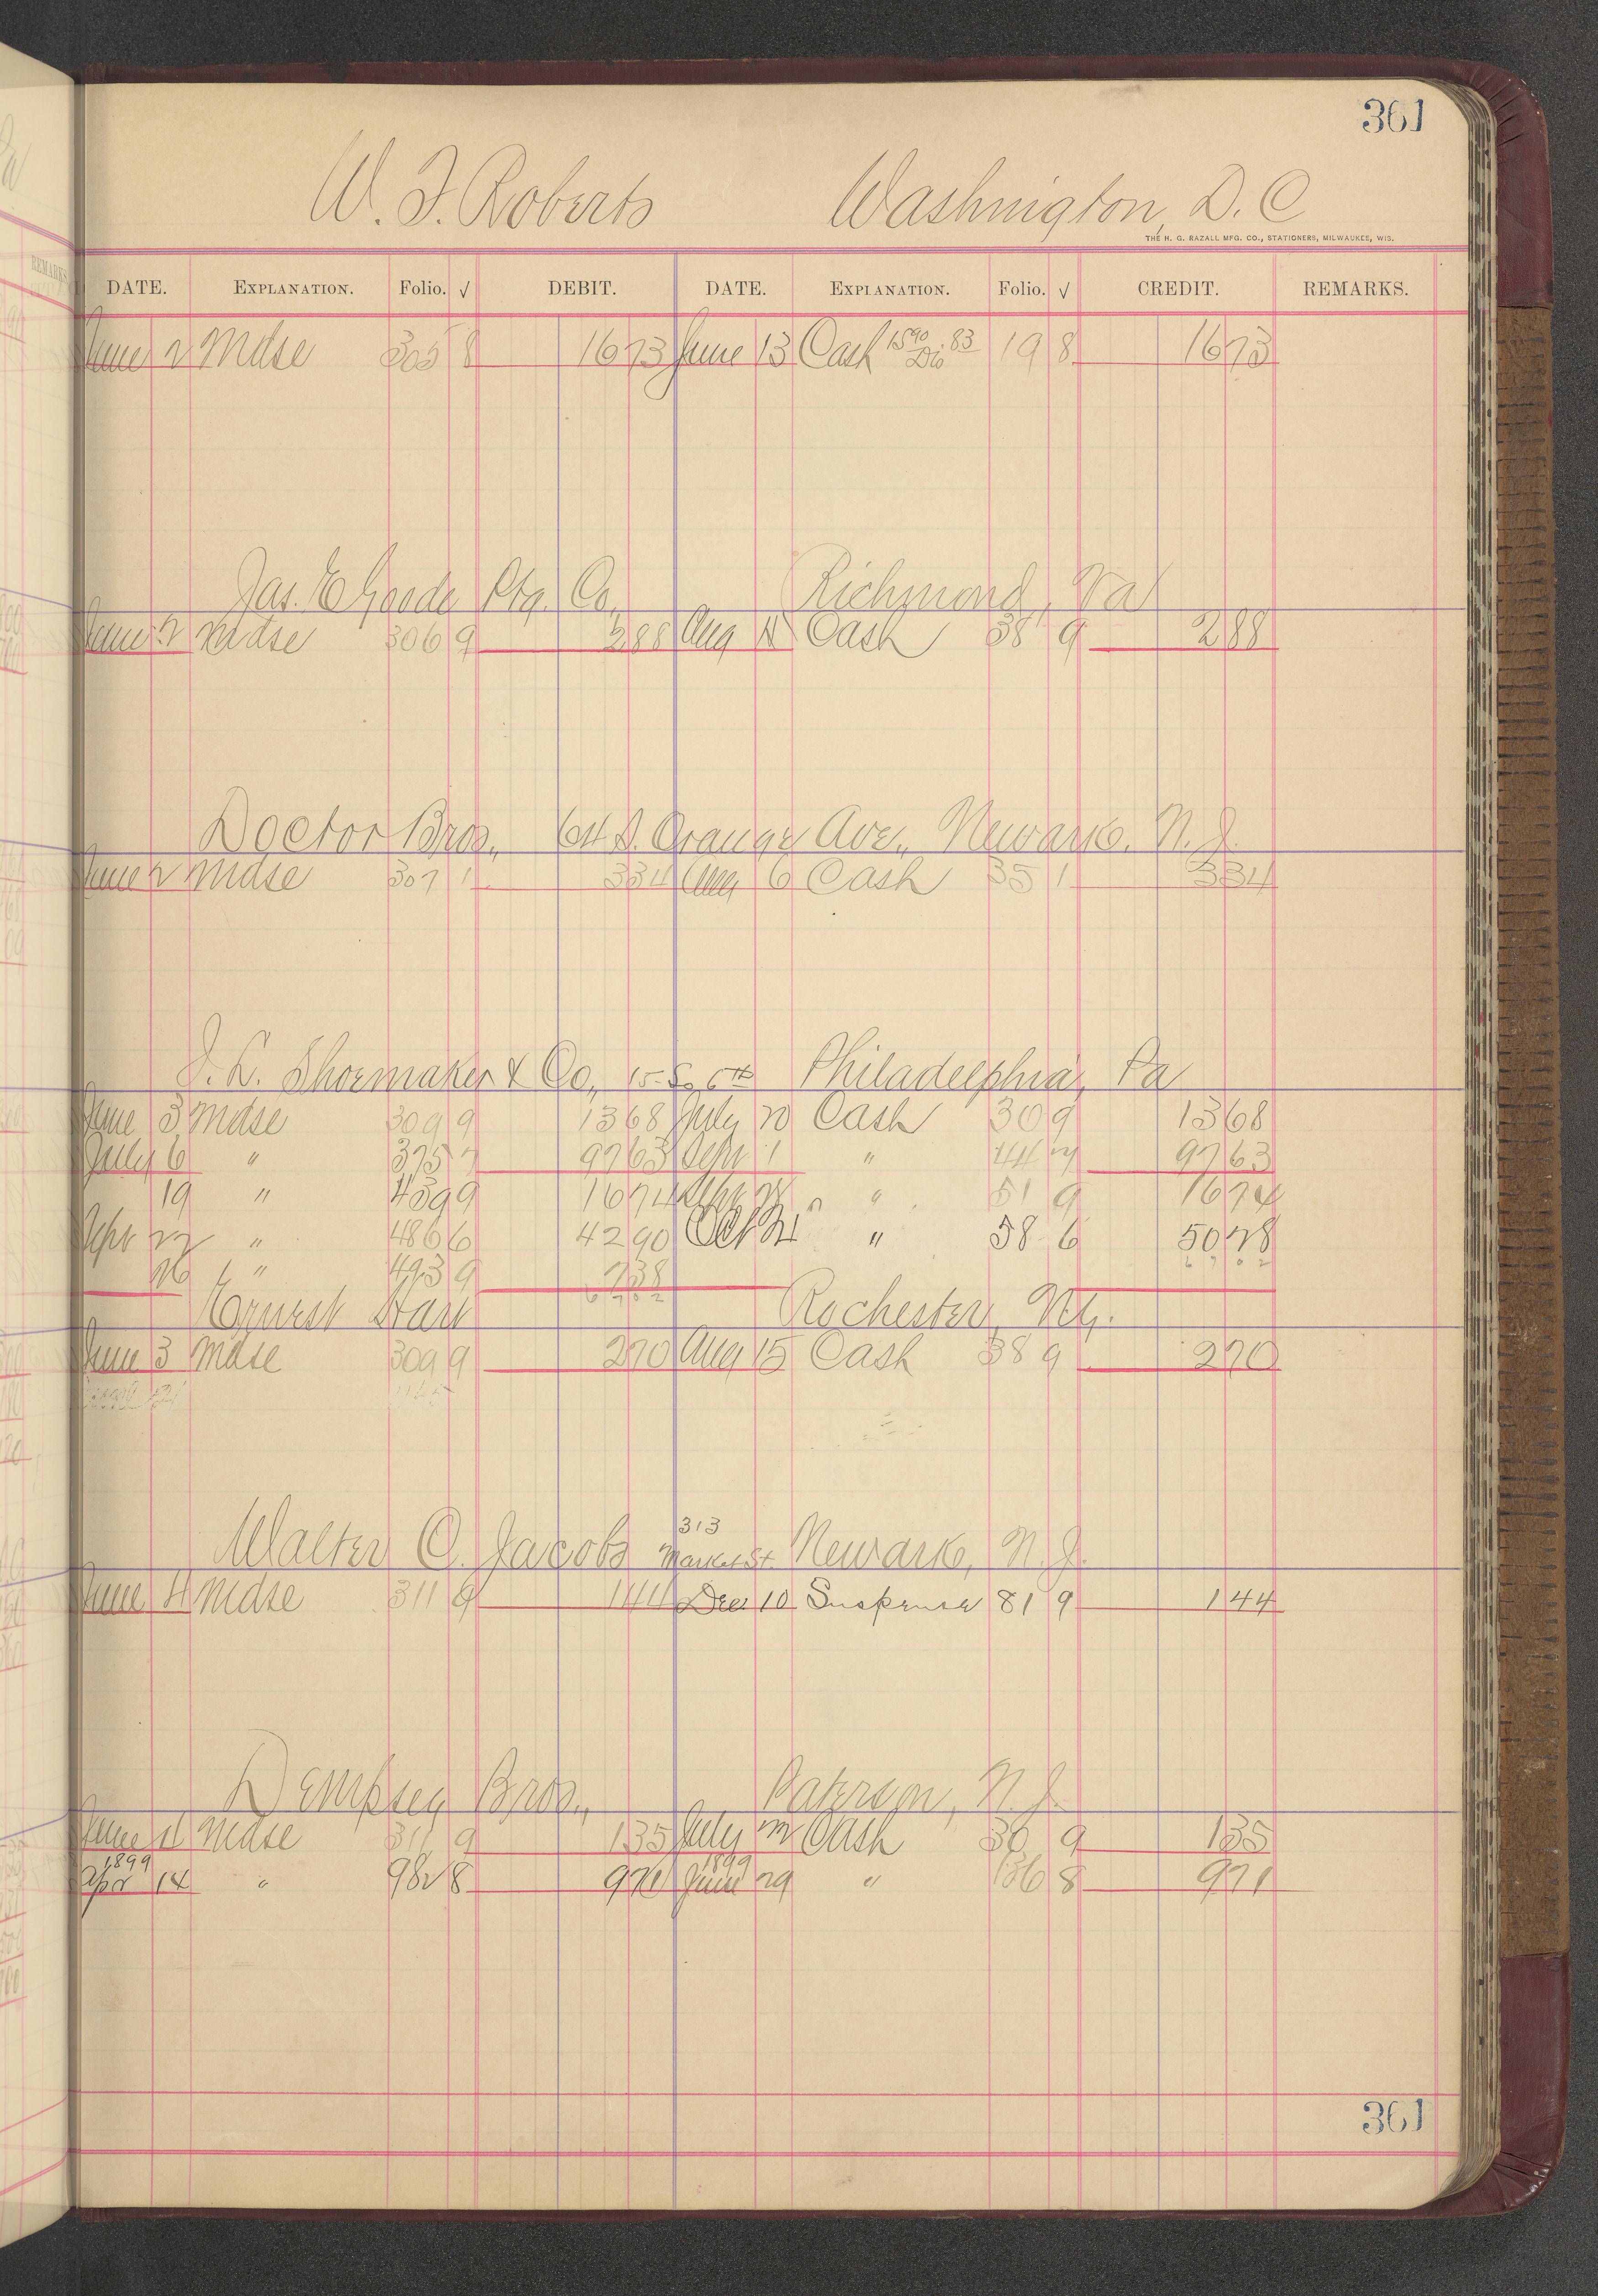 361
W. F. Roberts Washington, D. C
THE H. G. RAZALL MFG. CO., STATIONERS, MILWAUKEE, WIS.
DATE. EXPLANATION. Folio. √ DEBIT. DATE. EXPLANATION. Folio. √ CREDIT. REMARKS.
June 2 Mdse 305 8 1673 June 13 Cash 1590 Dis .83 19 8 1673
Jas. E Goode Ptg. Co., Richmond, Va
June 2 Mdse 306 9 288 Aug 15 Cash 38 9 288
Doctor Bros., 64 S. Orange Ave., Newark, N. J.
June 2 Mdse 307 1 334 Aug 6 Cash 35 1 334
J. L. Shoemaker & Co., 15 So 6th Philadelphia, Pa
June 3 Mdse 309 9 1368 July 20 Cash 30 9 1368
July 6 " 375 7 9763 Sept 1 " 44 7 9763
19 " 439 9 1674 Sept 28 " 51 9 1674
Sept 22 " 486 6 4290 Oct 21 " 58 6 5028
26 " 493 9 738
6702 6702
Ernest Hart Rochester, N.Y.
June 3 Mdse 309 9 270 Aug 15 Cash 38 9 270
Walter C. Jacobs 313 Market St. Newark, N. J.
June 4 Mdse 311 9 144 Dec 10 Suspense 81 9 144
Dempsey Bros., Paterson, N. J.
June 4 Mdse 311 9 135 July 22 Cash 30 9 135
1899 1899
Apr 14 " 982 8 971 June 29 " 136 8 971
361